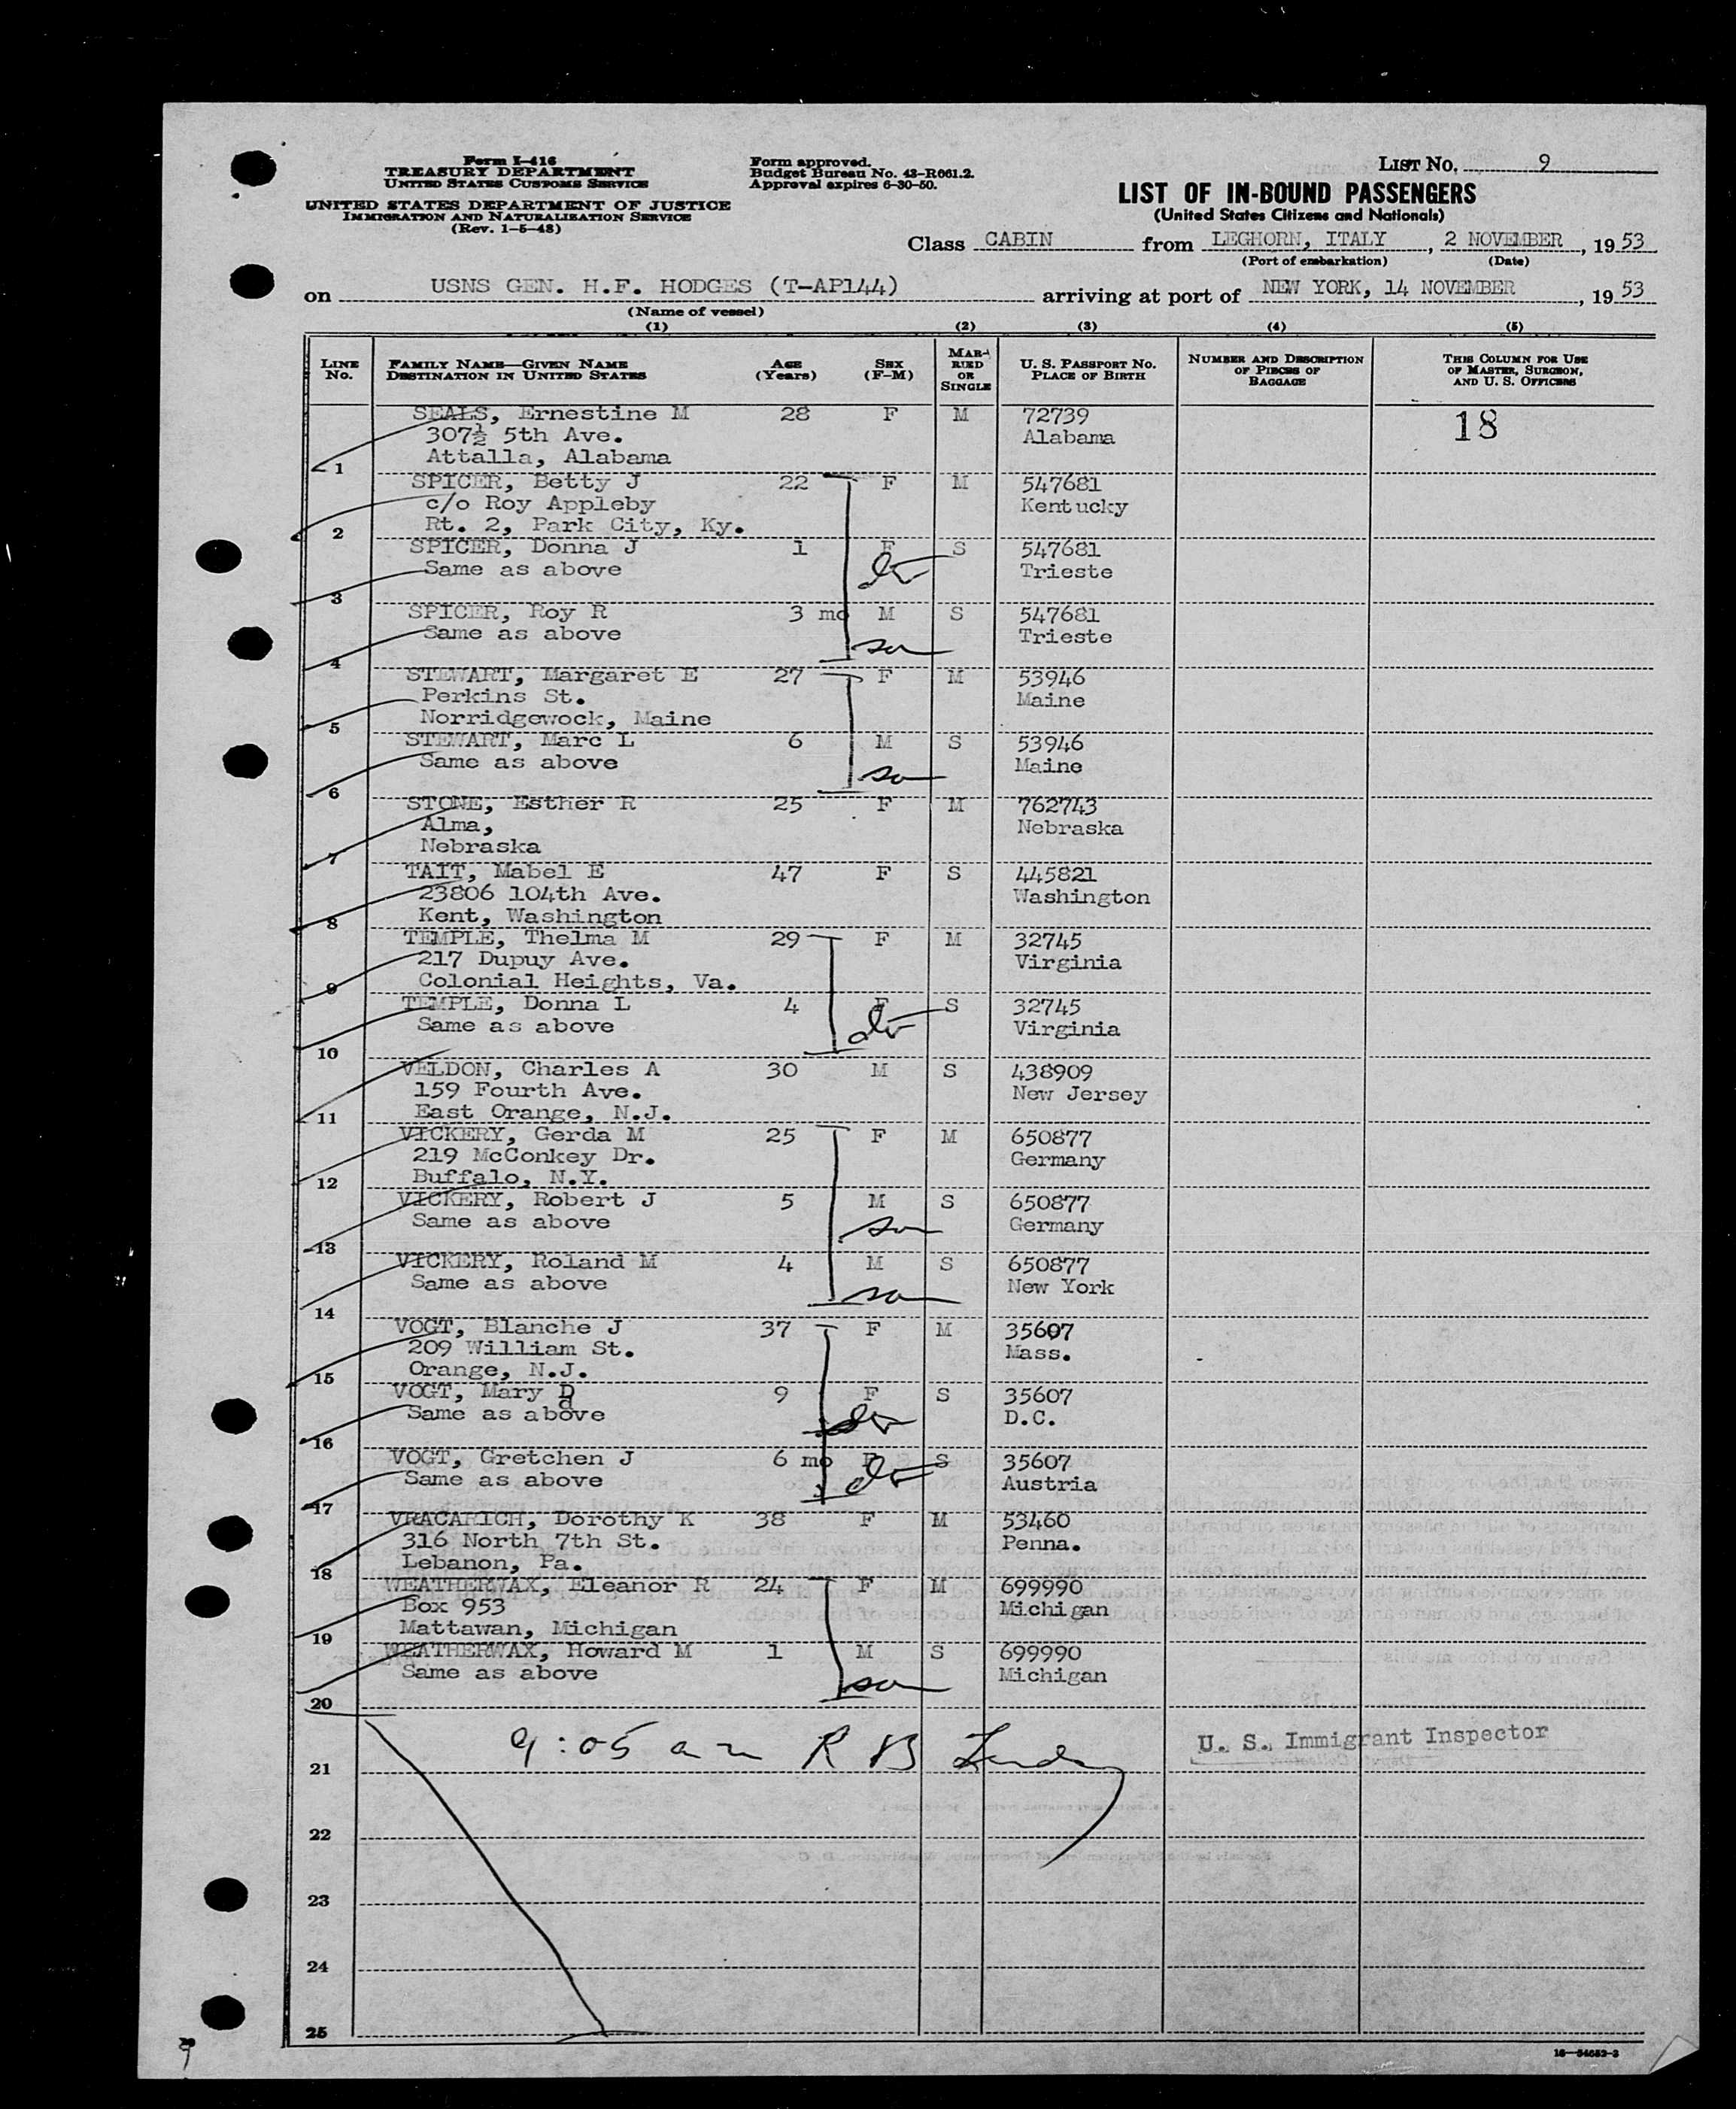 Form I-416
TREASURY DEPARTMENT
UNITED STATES CUSTOMS SERVICE
UNITED STATES DEPARTMENT OF JUSTICE
IMMIGRATION AND NATURALIZATION SERVICE
(Rev. 1-5-48)
Form approved.
Budget Bureau No. 43-R061.2.
Approval expires 6-30-50.
LIST No. 9
LIST OF IN-BOUND PASSENGERS
(United States Citizens and Nationals)
Class CABIN from LEGHORN, ITALY, 2 NOVEMBER, 1953
(Port of embarkation) (Date)
on USNS GEN. H.F. HODGES (T-AP144) arriving at port of NEW YORK, 14 NOVEMBER, 1953
(Name of vessel)
(1) (2) (3) (4) (5)
LINE No. FAMILY NAME—GIVEN NAME DESTINATION IN UNITED STATES AGE (Years) SEX (F-M) MARRIED OR SINGLE U. S. PASSPORT No. PLACE OF BIRTH NUMBER AND DESCRIPTION OF PIECES OF BAGGAGE THIS COLUMN FOR USE OF MASTER, SURGEON, AND U. S. OFFICERS
SEALS, Ernestine M 28 F M 72739 18
307½ 5th Ave. Alabama
1 Attalla, Alabama
SPICER, Betty J 22 F M 547681
c/o Roy Appleby Kentucky
2 Rt. 2, Park City, Ky.
SPICER, Donna J 1 F S 547681
Same as above Trieste
3
SPICER, Roy R 3 mo M S 547681
Same as above Trieste
4 son
STEWART, Margaret E 27 F M 53946
Perkins St. Maine
5 Norridgewock, Maine
STEWART, Marc L 6 M S 53946
Same as above Maine
6 son
STONE, Esther R 25 F M 762743
Alma, Nebraska
7 Nebraska
TAIT, Mabel E 47 F S 445821
23806 104th Ave. Washington
8 Kent, Washington
TEMPLE, Thelma M 29 F M 32745
217 Dupuy Ave. Virginia
9 Colonial Heights, Va.
TEMPLE, Donna L 4 F S 32745
Same as above Virginia
10
VELDON, Charles A 30 M S 438909
159 Fourth Ave. New Jersey
11 East Orange, N.J.
VICKERY, Gerda M 25 F M 650877
219 McConkey Dr. Germany
12 Buffalo, N.Y.
VICKERY, Robert J 5 M S 650877
Same as above son Germany
13
VICKERY, Roland M 4 M S 650877
Same as above son New York
14
VOGT, Blanche J 37 F M 35607
209 William St. Mass.
15 Orange, N.J.
VOGT, Mary D 9 F S 35607
Same as above D.C.
16
VOGT, Gretchen J 6 mo F S 35607
Same as above Austria
17
VRACARICH, Dorothy K 38 F M 53460
316 North 7th St. Penna.
18 Lebanon, Pa.
WEATHERWAX, Eleanor R 24 F M 699990
Box 953 Michigan
19 Mattawan, Michigan
WEATHERWAX, Howard M 1 M S 699990
Same as above son Michigan
20
9:05 am R B U. S. Immigrant Inspector
21
22
23
24
25
9
16—54652-3